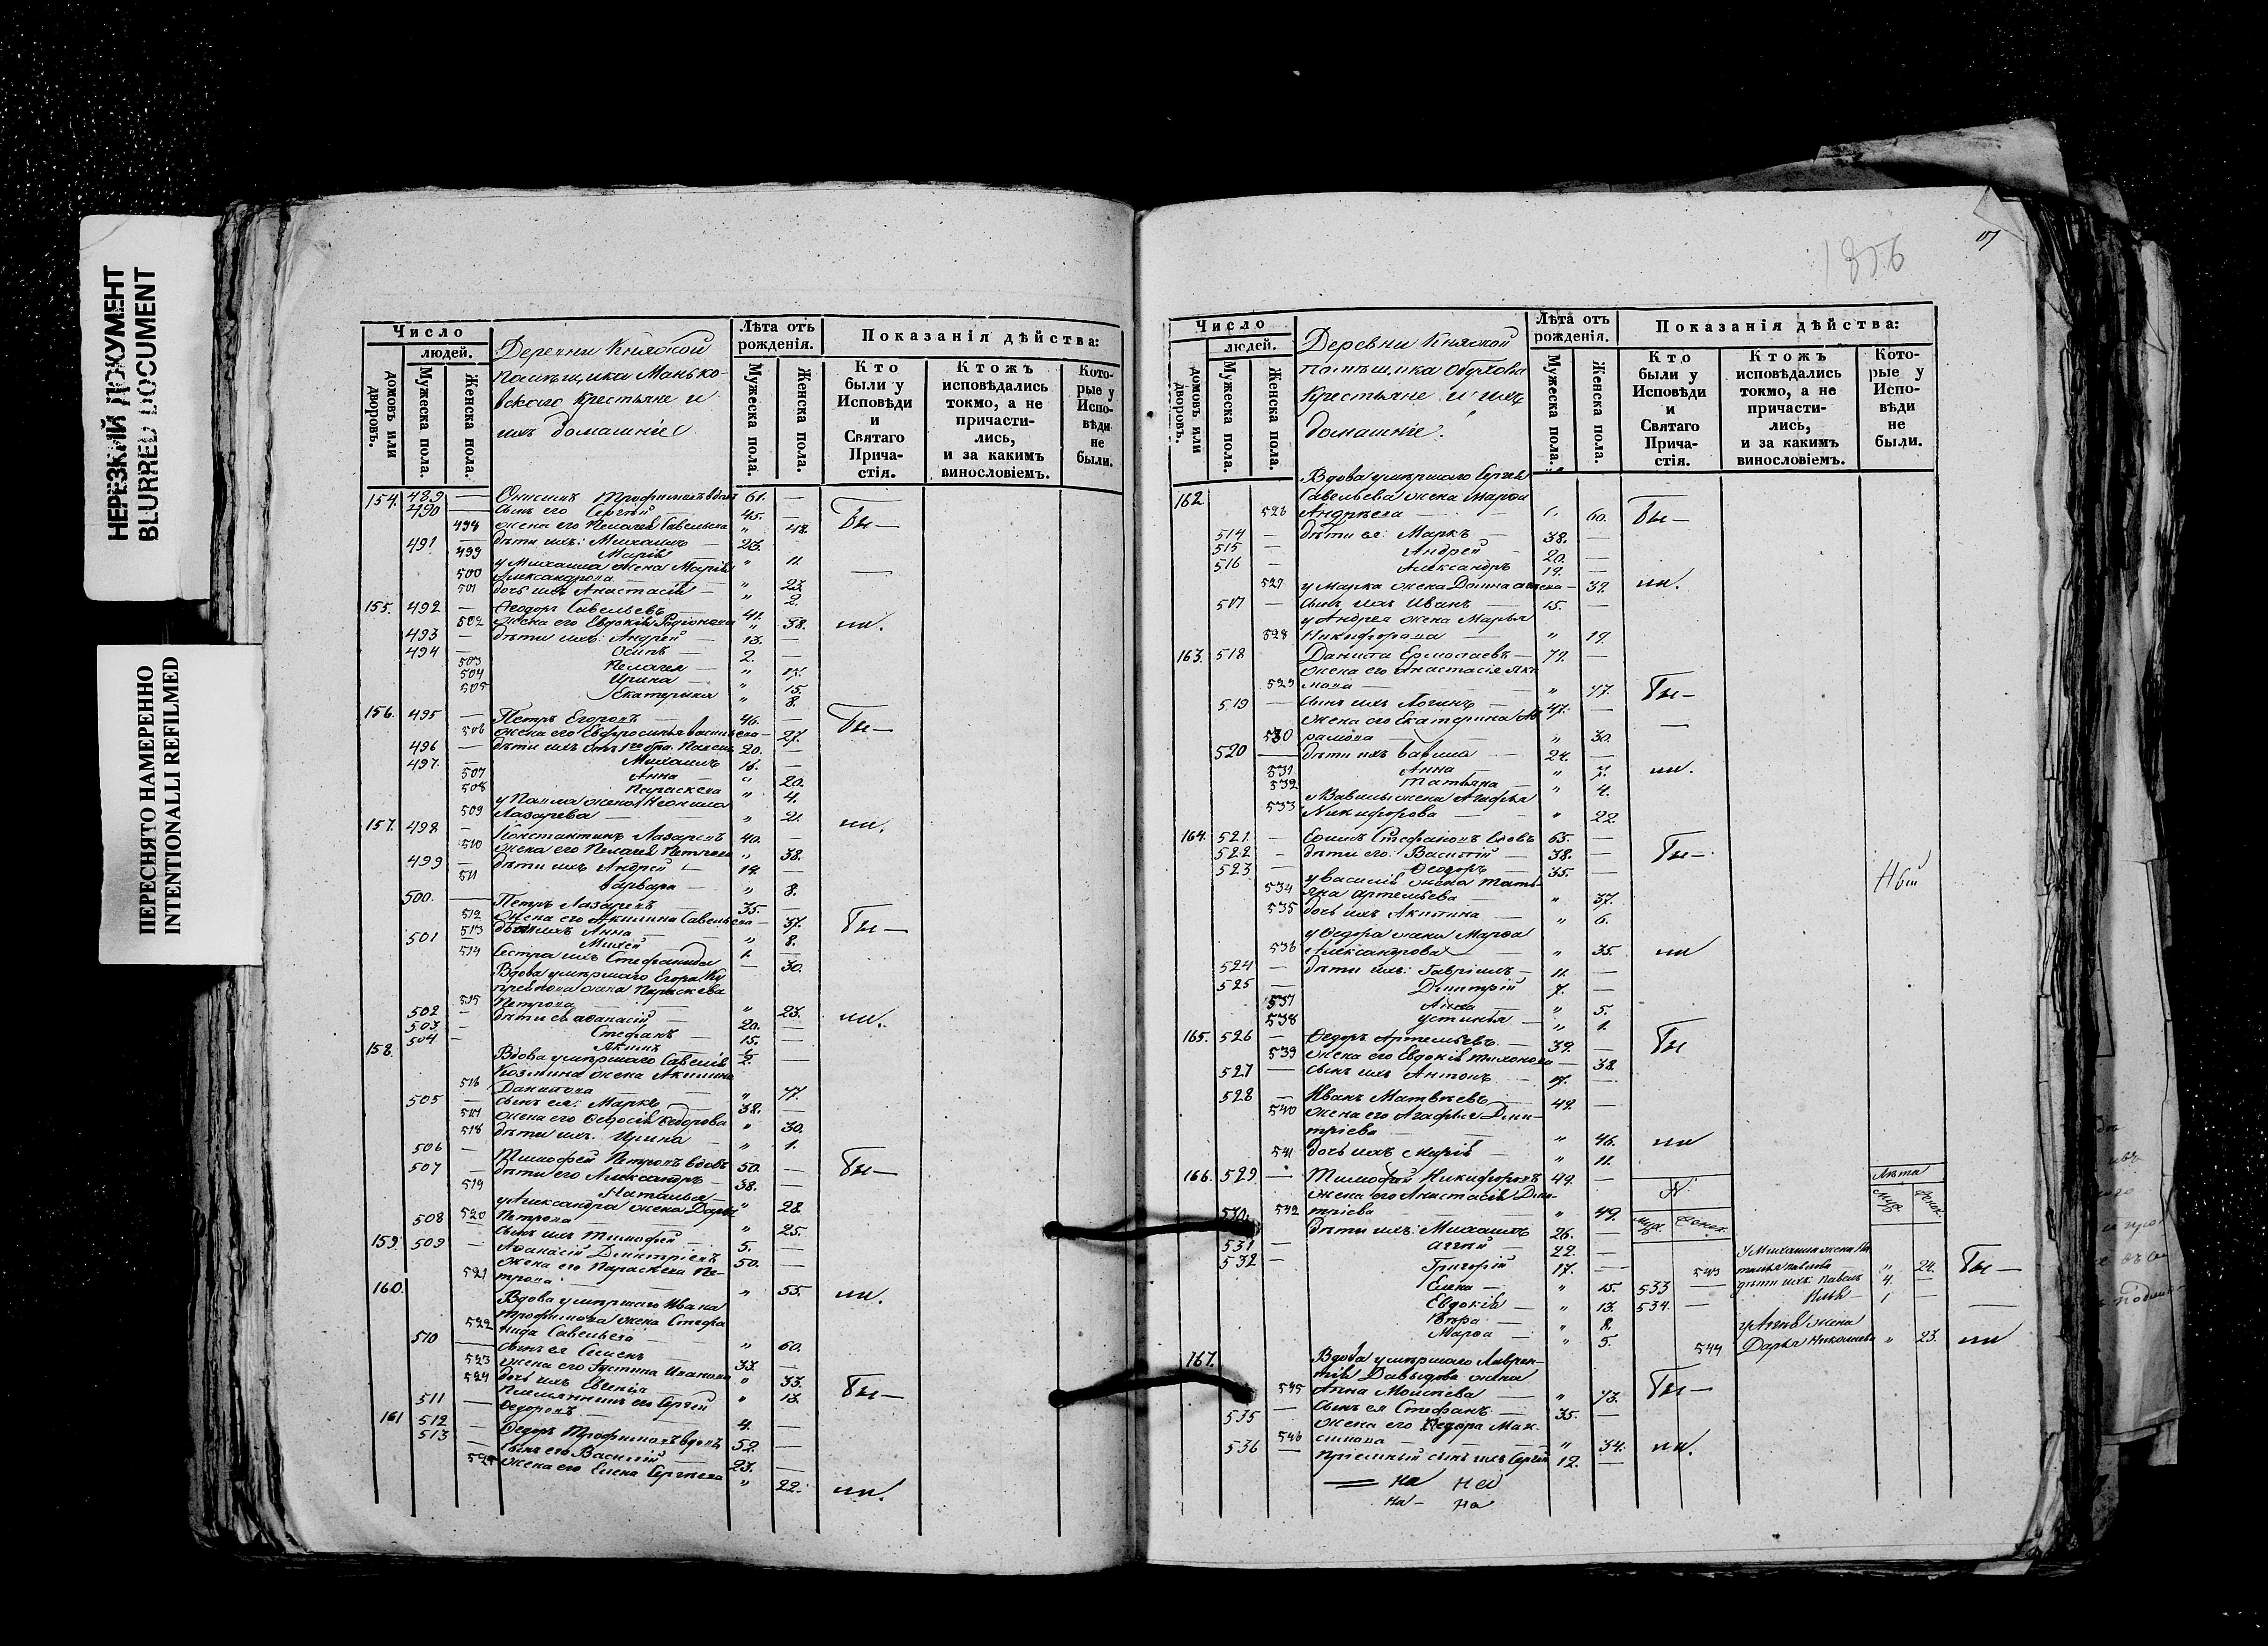 НЕРЕЗКИЙ ДОКУМЕНТ
BLURRED DOCUMENT
ПЕРЕСНЯТО НАМЕРЕННО
INTENTIONALLI REFILMED
Число
людей.
домовъ или дворовъ.
Мужеска пола.
Женска пола.
Деревни Княжой
помѣщика Манько-
вскаго крестьяне и
ихъ домашніе
Лѣта отъ рожденія.
Мужеска пола.
Женска пола.
Показанія дѣйства:
Кто были у Исповѣди и Святаго Прича-стія.
Ктожъ исповѣдались токмо, а не причасти-лись, и за какимъ винословіемъ.
Кото-рые у Испо-вѣди не были.
154. 489 — Трофимовъ вдовъ 61. —
490 — сынъ его Сергѣй — 45. — Бы—
498 жена его Пелагея Савельева " 48.
491 — дѣти ихъ: Михаилъ — 23.
499 Марія " 11.
у Михаила жена Марія
500 Александрова — " 23
501 дочь ихъ Анастасія — " 2.
155. 492 — Ѳеодоръ Савельевъ — 41. —
502 жена его Евдокія Родіонова " 38. ли.
493 — дѣти ихъ: Андрей — 13. —
494 — Осипъ — 2. —
503 Пелагея — " 17.
504 Ирина — " 15.
505 Екатерина " 8.
156. 495 — Петръ Егоровъ — 46. — Бы—
506 жена его Евфросинья Васильева — 27.
496 — дѣти ихъ отъ 1го бра. Павелъ 20. —
497. Михаилъ 16. —
507 Анна — " 20.
508 Параскева " 4.
у Павла жена
509 Лазарева — " 21. ли.
157. 498 — Константинъ Лазаревъ 40. —
510 жена его Пелагея Петрова " 38.
499 — дѣти ихъ Андрей — 14. —
511 Варвара — " 8.
500. — Петръ Лазаревъ — 35. —
512 жена его Акилина Савельева — 37. Бы—
513 Анна — " 8.
501 — 1. —
514 Сестра ихъ Стефанида — 30.
Вдова умершаго Егора
жена Параскева
515 Петрова — " 23. ли.
502 — дѣти ея Аѳанасій — 20. —
503 — Стефанъ — 15. —
504 —
158. Вдова умершаго Савелія
Козмина жена Акилина
516 Данилова — " 77.
505 — сынъ ея: Маркъ — 38. —
517 жена его Ѳедосія Ѳедорова " 30.
518 дѣти ихъ. Ирина — " 1.
506 — Тимофей Петровъ вдовъ 50. — Бы—
507 — дѣти его Александръ — 38. —
519 Наталья — " 28.
у Александра жена Дарья
520 Петрова — " 25.
508 — сынъ ихъ Тимофей — 5. —
159. 509 — Аѳанасій Дмитріевъ 50. —
жена его Параскева Пе-
521 трова — " 55. ли.
160. Вдова умершаго Ивана
Трофимова жена Стефа
522 нида Савельева — " 60.
510 — сынъ ея Семенъ — 33. —
523 жена его Иванова " 33.
524 дочь ихъ Евгенія — " 13. Бы—
511 — Племянникъ его Сергѣй
Ѳедоровъ — 4. —
161 512 — Ѳедоръ Трофимовъ вдовъ 52. —
513 — сынъ его Василій — 23. —
525 жена его Елена Сергѣева " 22. ли.
1856
Число
людей.
домовъ или дворовъ.
Мужеска пола.
Женска пола.
Деревни Княжой
помѣщика Обухова
крестьяне и ихъ
домашніе.
Лѣта отъ рожденія.
Мужеска пола.
Женска пола.
Показанія дѣйства:
Кто были у Исповѣди и Святаго Прича-стія.
Ктожъ исповѣдались токмо, а не причасти-лись, и за какимъ винословіемъ.
Кото-рые у Испо-вѣди не были.
Вдова умершаго Сергѣя
162. Савельева жена Марѳа
526 Андреева — 60. Бы—
514 — дѣти ея: Маркъ — 38. —
515 — Андрей — 20. —
516 — Александръ 19. —
527 у Марка жена — 39. ли.
517 — сынъ ихъ Иванъ — 15. —
у Андрея жена Марья
528 Никифорова — " 19.
163. 518 Данила Ермолаевъ — 79. —
жена его Анастасія
529 " 77. Бы—
519 — сынъ ихъ Логинъ — 47. —
жена его Екатерина Ав
530 рамова — " 30.
520 — дѣти ихъ Вавила — 24. —
531 Анна — " 7. ли.
532 Татьяна — " 4.
у Вавилы жена Агафья
533 Никифорова — " 22.
164. 521. — Стефановъ вдовъ 65. —
522 — дѣти его: Василій — 38. — Бы—
523 — Ѳеодоръ — 35. —
у Василія жена Тать-
534 яна Артемьева — " 37.
535 дочь ихъ Акилина — " 6.
у Ѳедора жена Марѳа
536 Александрова — " 35. ли
524 — дѣти ихъ: Гавріилъ — 11. —
525 — Дмитрій 7. —
537 Анна — " 5.
538 Устинья — " 1.
165. 526 — Ѳедоръ Артемьевъ — 39. — Бы
539 жена его Евдокія Тихонова — 38.
527 — сынъ ихъ Антонъ — 17. —
528 — Иванъ Матвѣевъ — 49. —
540 жена его Агафья Дми-
тріева — " 46. ли
541 дочь ихъ Марія — " 11.
166. 529 — Тимофей Никифоровъ 49. —
жена его Анастасія Дми-
542 тріева — " 49.
530. дѣти ихъ: Михаилъ 26. —
531 — 22. —
532 — Григорій 17. —
Елена — " 15.
Евдокія — " 13.
Вѣра — " 8.
Марѳа — " 5.
№
муж. женск.
Лѣта
муж. женск.
У Михаила жена На
543 талья Павлова " 24. Бы—
533 — дѣти ихъ: Павелъ 4. —
534. — Илья — 1 —
жена
544 Дарья Николаева " 23. ли
167. Вдова умершаго Лаврен-
тія Давыдова жена
545 Анна Моисеева — " 73. Бы—
535 — сынъ ея Стефанъ — 35. —
жена его Ѳедора Мак-
546 симова — " 34. ли.
536 — Пріемный сынъ ихъ Сергѣй 12. —